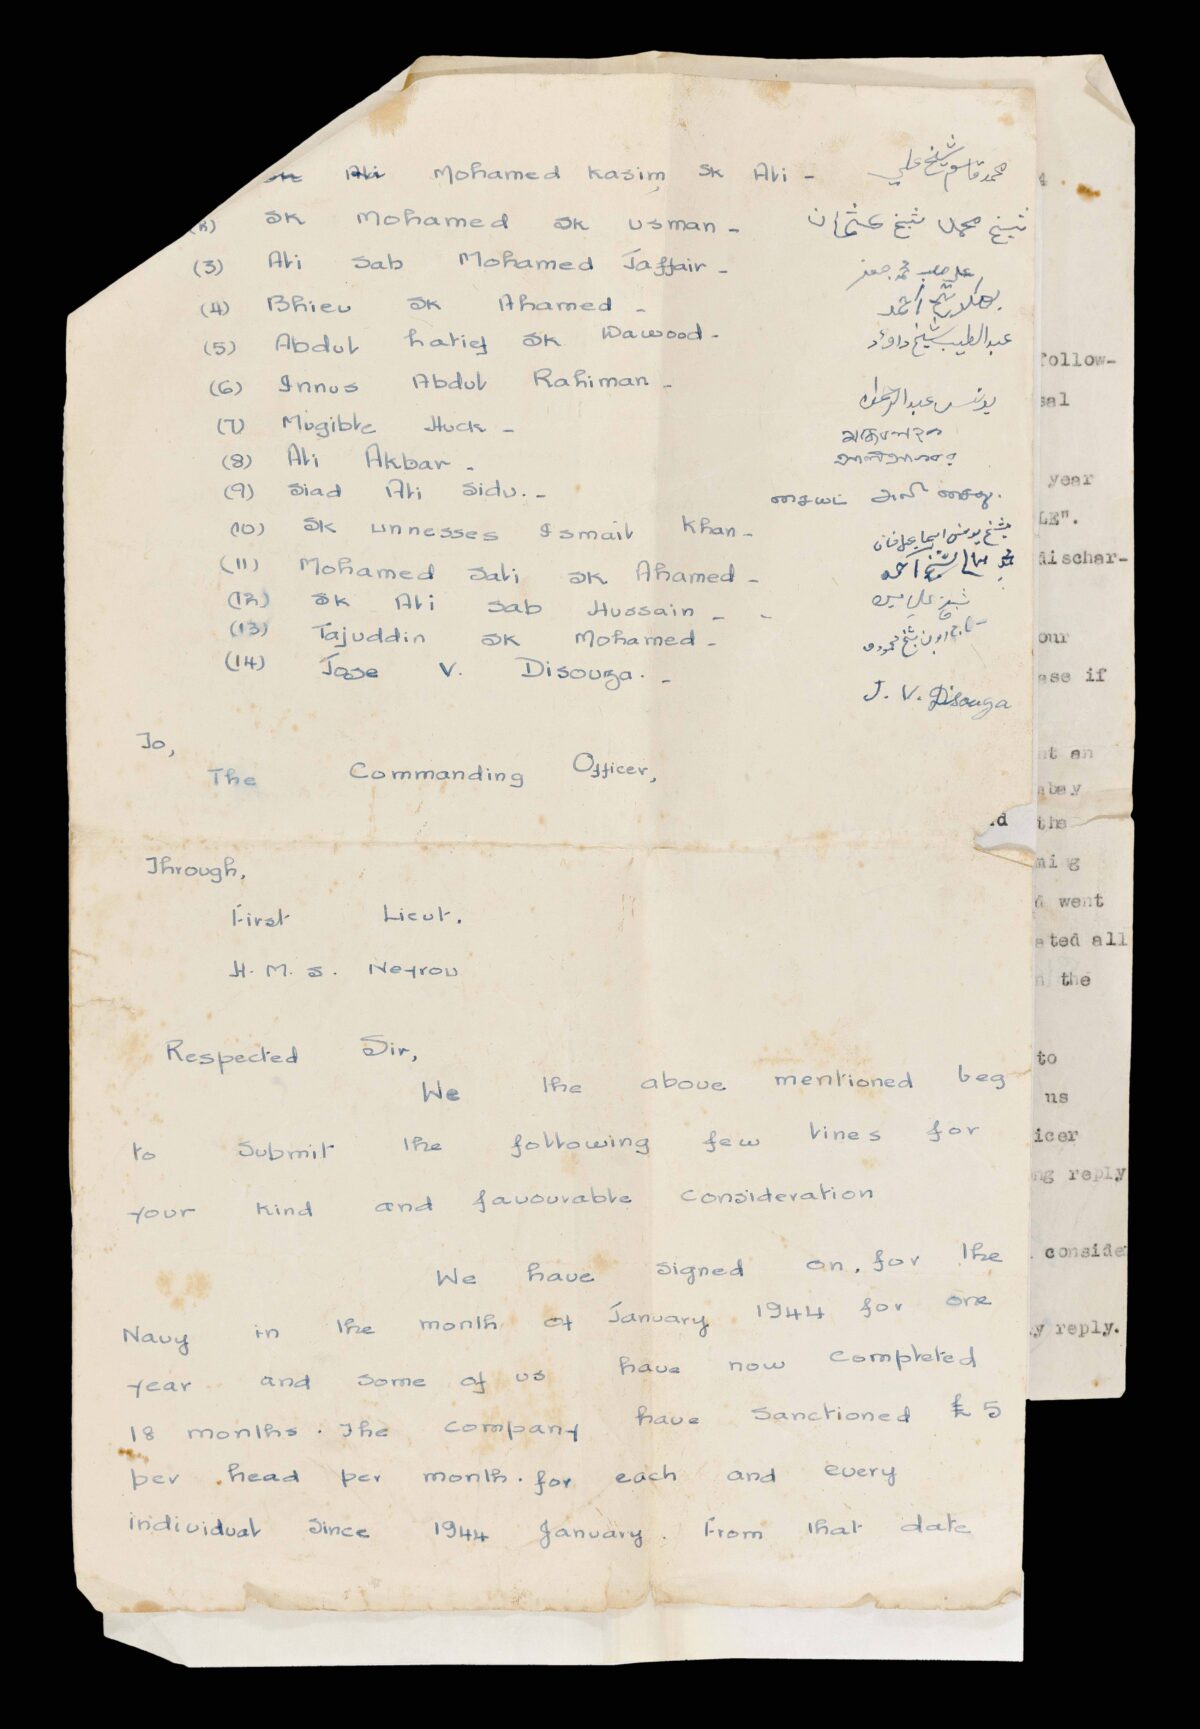 Ali Mohamed Kasim SK Ali - محمد قاسم شيخ علي
(2) SK Mohamed SK Usman - شيخ محمد شيخ عثمان
(3) Ali Sab Mohamed Jaffair - علي صاب محمد جعفر
(4) Bhieu SK Ahamed -
(5) Abdul hatief SK Dawood - عبدالطيب شيخ داود
(6) Innus Abdul Rahiman - يونس عبدالرحمان
(7) Mugible Huck -
(8) Ali Akbar -
(9) Siad Ali Sidu. -
(10) SK unnesses Ismail Khan - شيخ يونس اسماعيل خان
(11) Mohamed Sali SK Ahamed -
(12) SK Ali Sab Hussain - -
(13) Tajuddin SK Mohamed -
(14) Jose V. Disouza. - J. V. Disouza
To,
The Commanding Officer,
Through,
First Lieut.
H. M. S. Neyrou
Respected Sir,
We the above mentioned beg
to submit the following few lines for
your kind and favourable consideration
We have signed on, for the
Navy in the month of January 1944 for one
year and some of us have now completed
18 months. The company have sanctioned £ 5
per head per month. for each and every
individual since 1944 January. From that date
4
follow-
sal
year
LE".
dischar-
our
ase if
at an
abay
d the
ming
d went
ated all
n the
to
us
icer
ng reply
conside
y reply.